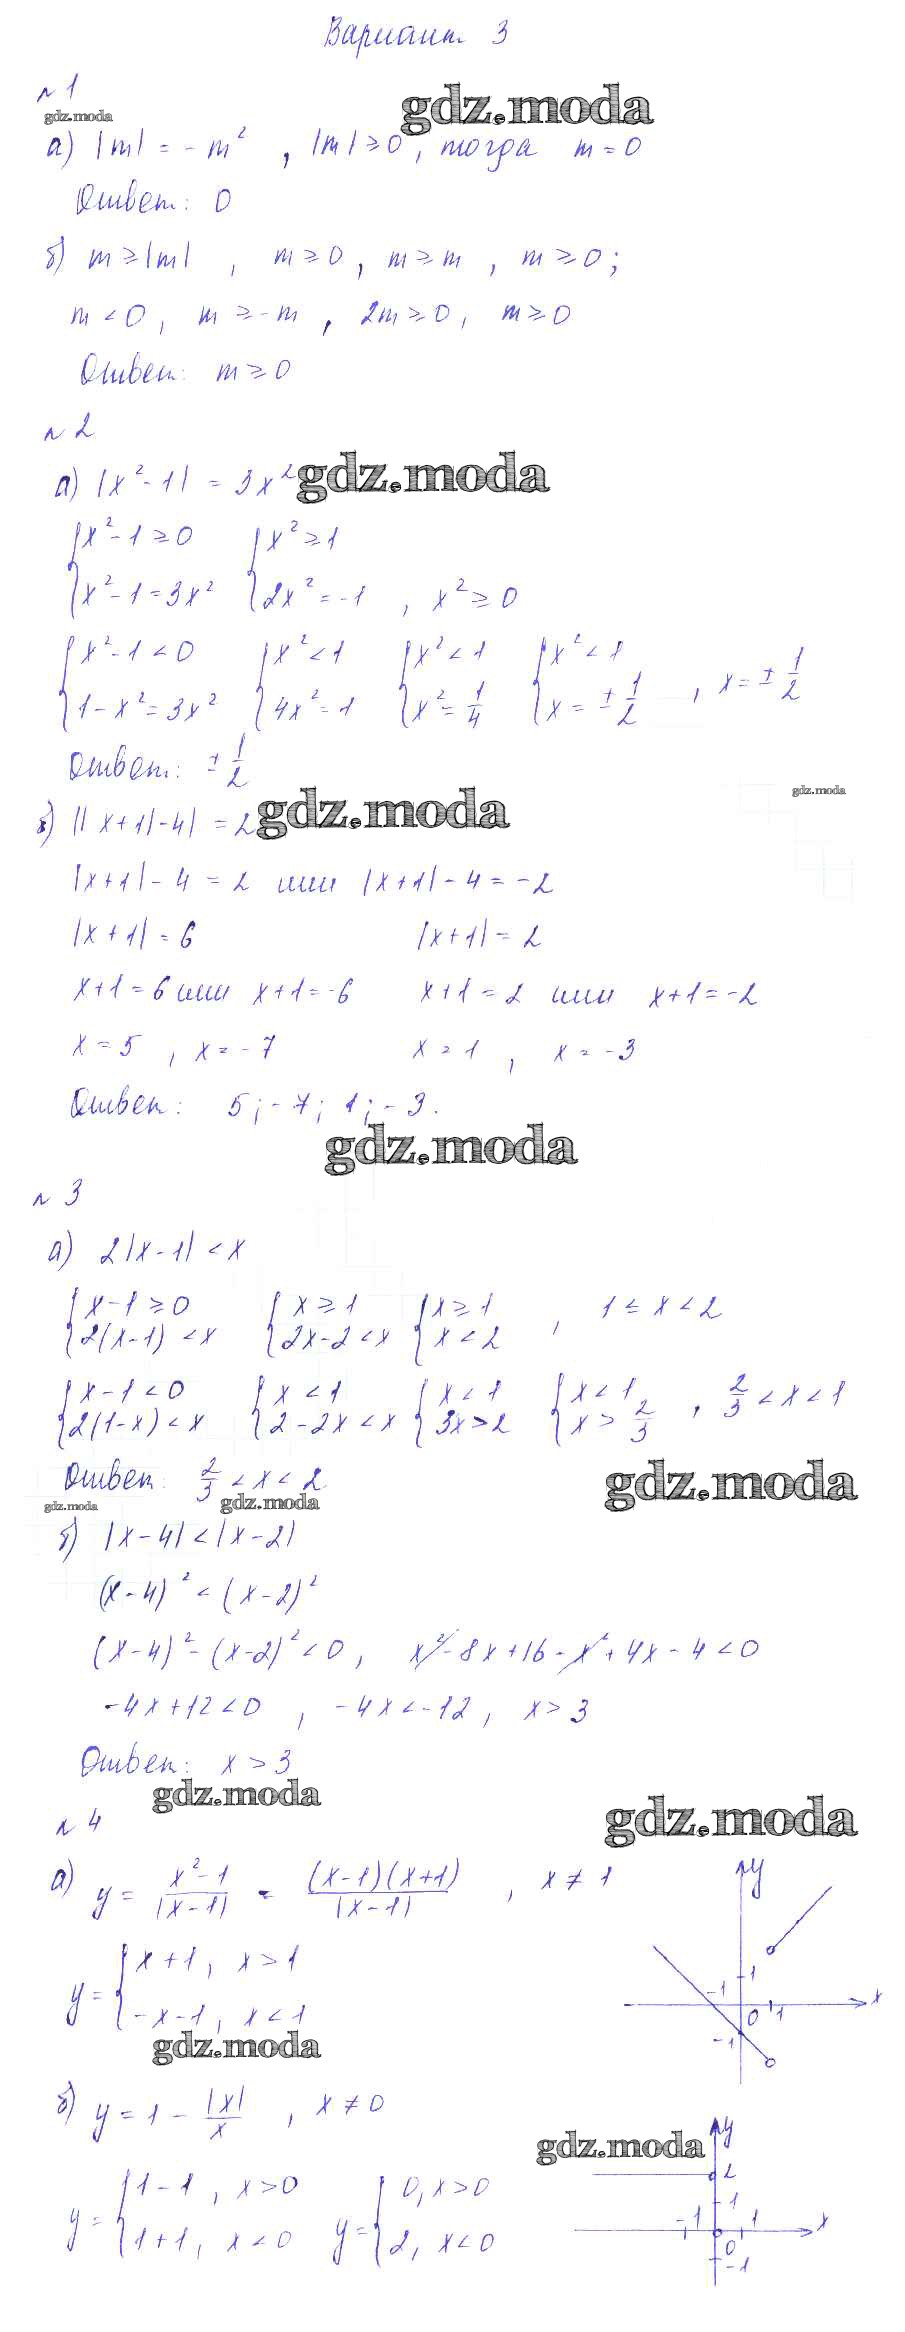 Вариант 3
№1
gdz.moda
gdz.moda
а) |m| = -m², |m| ≥ 0, тогда m = 0
Ответ: 0
б) m ≥ |m|, m ≥ 0, m ≥ m, m ≥ 0;
m < 0, m ≥ -m, 2m ≥ 0, m ≥ 0
Ответ: m ≥ 0
№2
а) |x² - 1| = 3x²
gdz.moda
{x² - 1 ≥ 0 {x² ≥ 1
{x² - 1 = 3x² {2x² = -1, x² ≥ 0
{x² - 1 < 0 {x² < 1 {x² < 1 {x² < 1
{1 - x² = 3x² {4x² = 1 {x² = 1/4 {x = ± 1/2, x = ± 1/2
Ответ: ± 1/2
gdz.moda
б) ||x+1| - 4| = 2
gdz.moda
|x+1| - 4 = 2 или |x+1| - 4 = -2
|x+1| = 6 |x+1| = 2
x+1 = 6 или x+1 = -6 x+1 = 2 или x+1 = -2
x = 5, x = -7 x = 1, x = -3
Ответ: 5; -7; 1; -3.
gdz.moda
№3
а) 2|x-1| < x
{x-1 ≥ 0 {x ≥ 1 {x ≥ 1
{2(x-1) < x {2x-2 < x {x < 2, 1 ≤ x < 2
{x-1 < 0 {x < 1 {x < 1 {x < 1
{2(1-x) < x {2-2x < x {3x > 2 {x > 2/3, 2/3 < x < 1
Ответ: 2/3 < x < 2
gdz.moda
gdz.moda
gdz.moda
б) |x-4| < |x-2|
(x-4)² < (x-2)²
(x-4)² - (x-2)² < 0, x² - 8x + 16 - x² + 4x - 4 < 0
-4x + 12 < 0, -4x < -12, x > 3
Ответ: x > 3
gdz.moda
gdz.moda
№4
а) y = (x²-1)/|x-1| = (x-1)(x+1)/|x-1|, x ≠ 1
y = {x+1, x > 1
{-x-1, x < 1
y
1
-1
0
1
x
-1
gdz.moda
б) y = 1 - |x|/x, x ≠ 0
gdz.moda
y = {1-1, x > 0 y = {0, x > 0
{1+1, x < 0 {2, x < 0
y
2
1
-1
1
x
0
-1